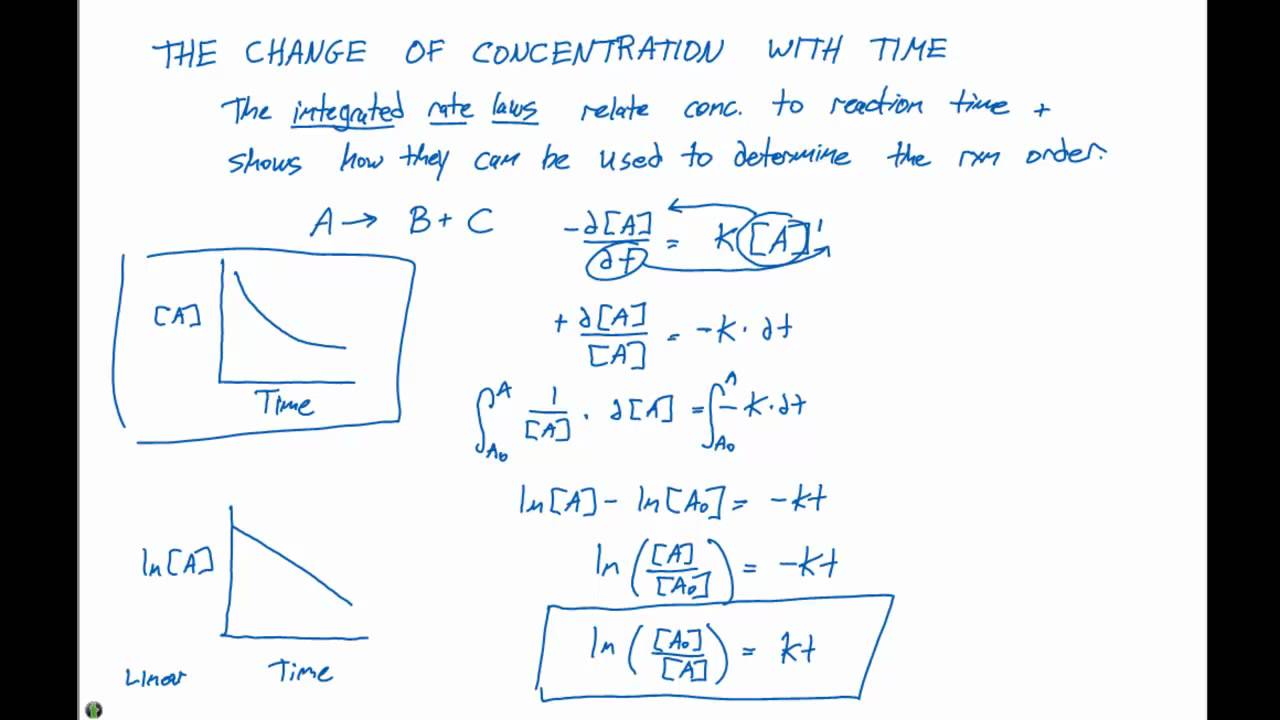 THE CHANGE OF CONCENTRATION WITH TIME
The integrated rate laws relate conc. to reaction time +
shows how they can be used to determine the rxn order.
A → B + C
-∂[A]/∂t = k[A]¹
[A]
Time
+∂[A]/[A] = -k · ∂t
∫_{A₀}^{A} 1/[A] · ∂[A] = ∫_{A₀}^{A} -k · ∂t
ln[A] - ln[A₀] = -kt
ln[A]
Time
Linear
ln([A]/[A₀]) = -kt
ln([A₀]/[A]) = kt